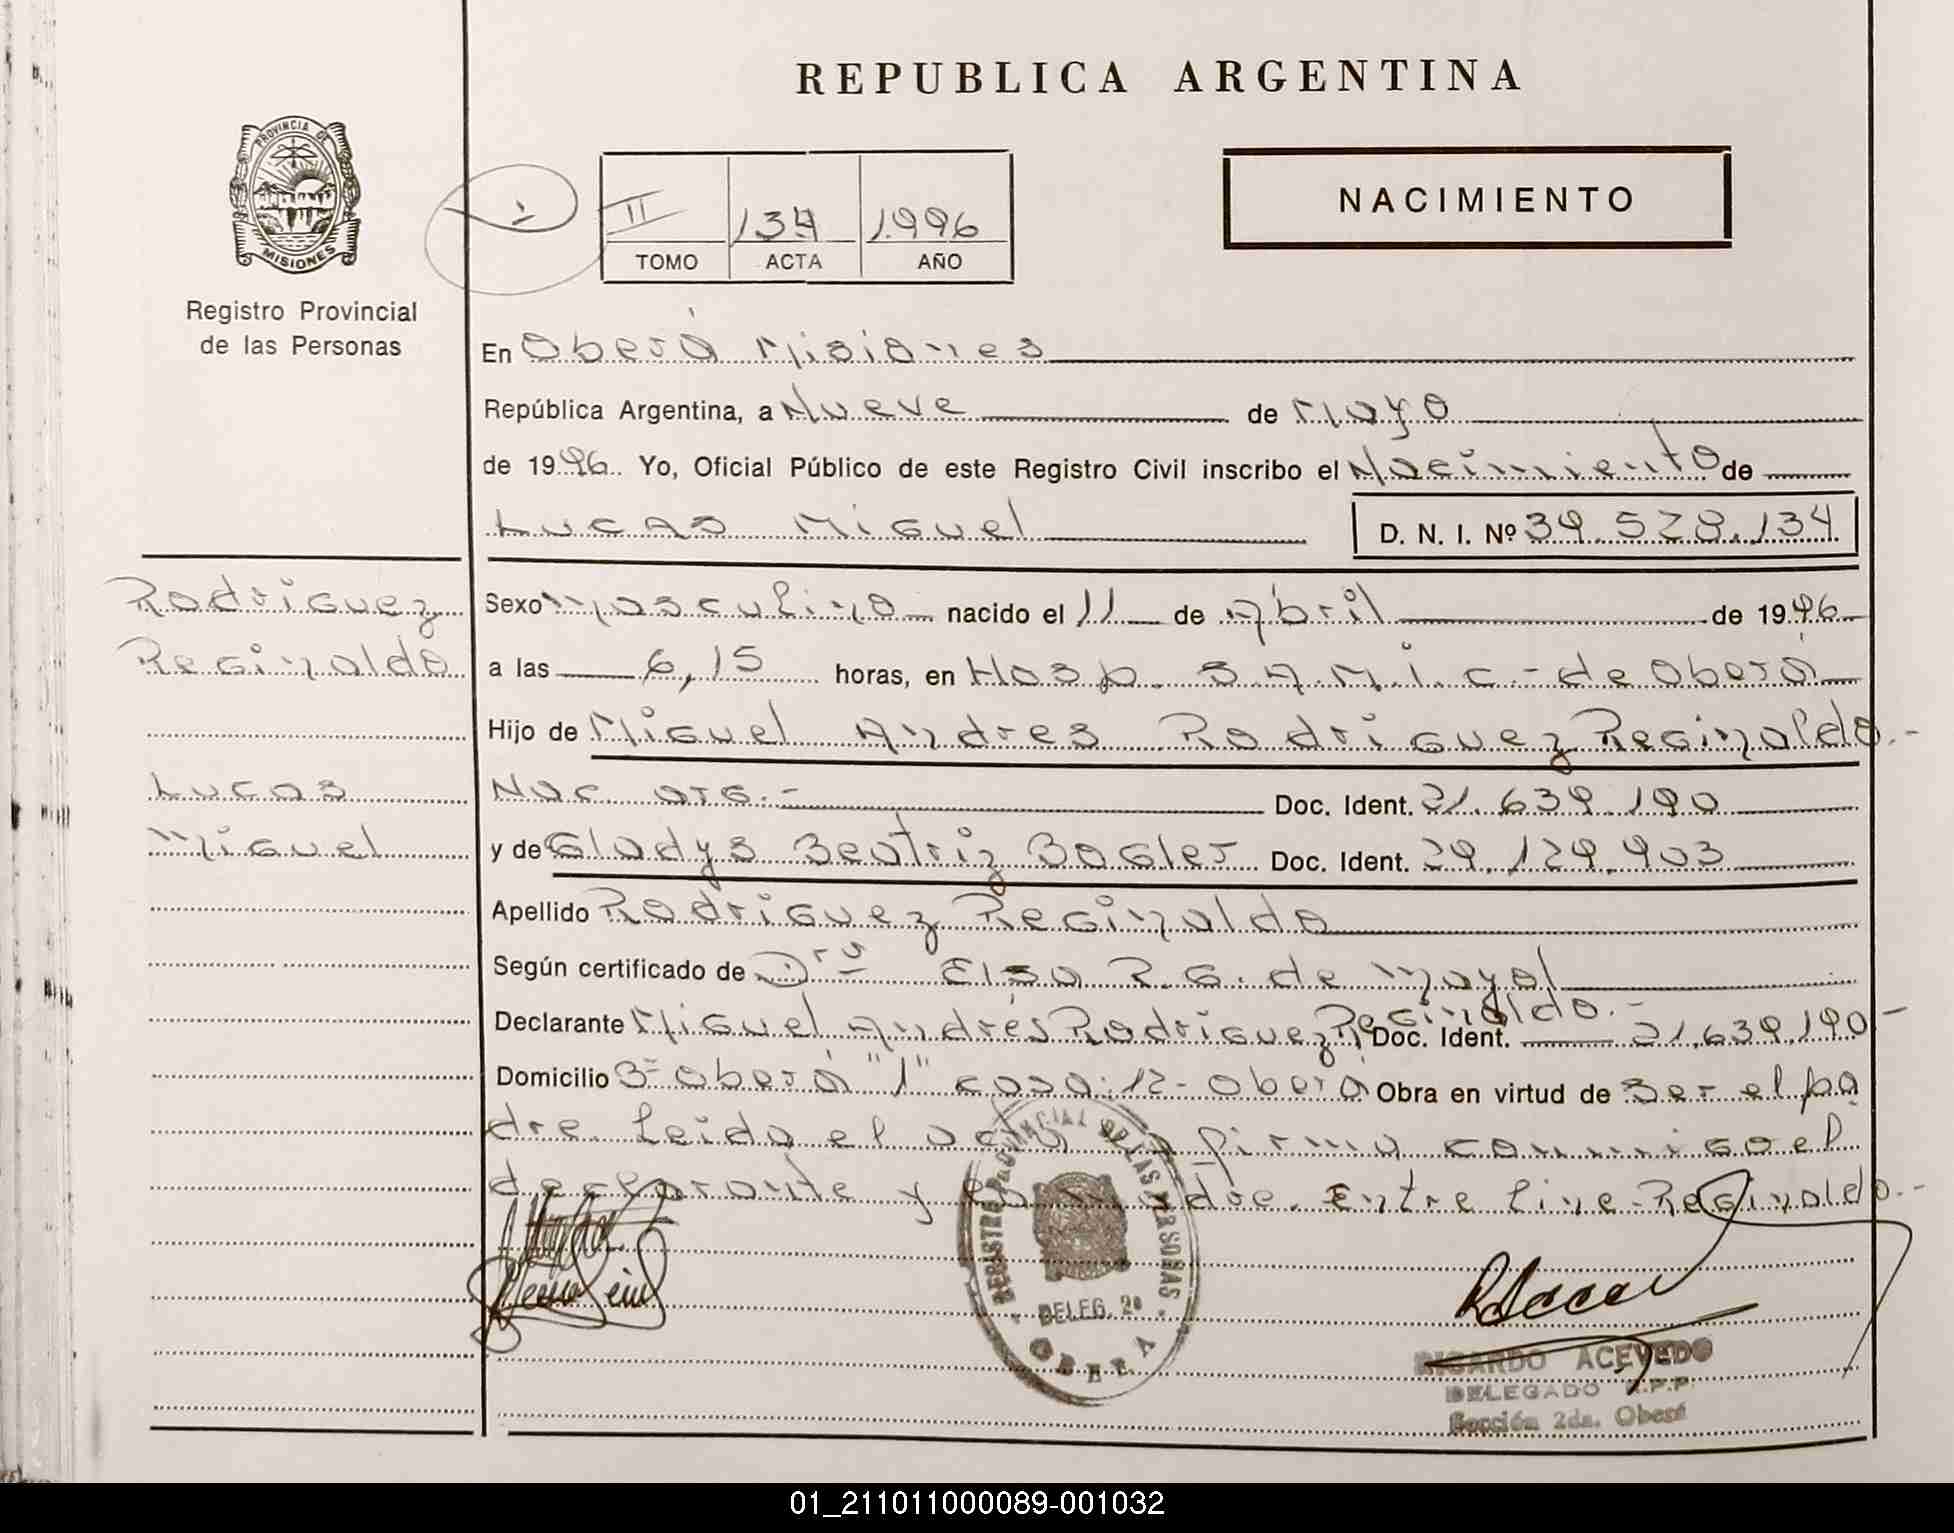 REPUBLICA ARGENTINA
PROVINCIA DE
MISIONES
Registro Provincial
de las Personas
II 134 1996
TOMO ACTA AÑO
NACIMIENTO
En Oberá Misiones
República Argentina, a Nueve de Mayo
de 1996. Yo, Oficial Público de este Registro Civil inscribo el Nacimiento de
Lucas Miguel D. N. I. Nº 39.528.134
Rodriguez
Reginaldo
Lucas
Miguel
Sexo Masculino nacido el 11 de Abril de 1996
a las 6,15 horas, en Hosp. S.A.M.i.c.- de Oberá
Hijo de Miguel Andres Rodriguez Reginaldo.-
Nac. arg.- Doc. Ident. 21.639.190
y de Gladys Beatriz Bogler Doc. Ident. 29.129.903
Apellido Rodriguez Reginaldo
Según certificado de Dra Elsa R.G. de Mayol
Declarante Miguel Andrés Rodriguez Reginaldo.- Doc. Ident. 21.639.190-
Domicilio Bº Oberá "1" casa: 12- Oberá Obra en virtud de ser el pa
dre. Leida el acta la firma conmigo el
declarante y la madre. Entre line-Reginaldo.-
REGISTRO PROVINCIAL DE LAS PERSONAS
DELEG. 2ª
OBERA
RICARDO ACEVEDO
DELEGADO R.P.P.
Sección 2da. Oberá
01_211011000089-001032